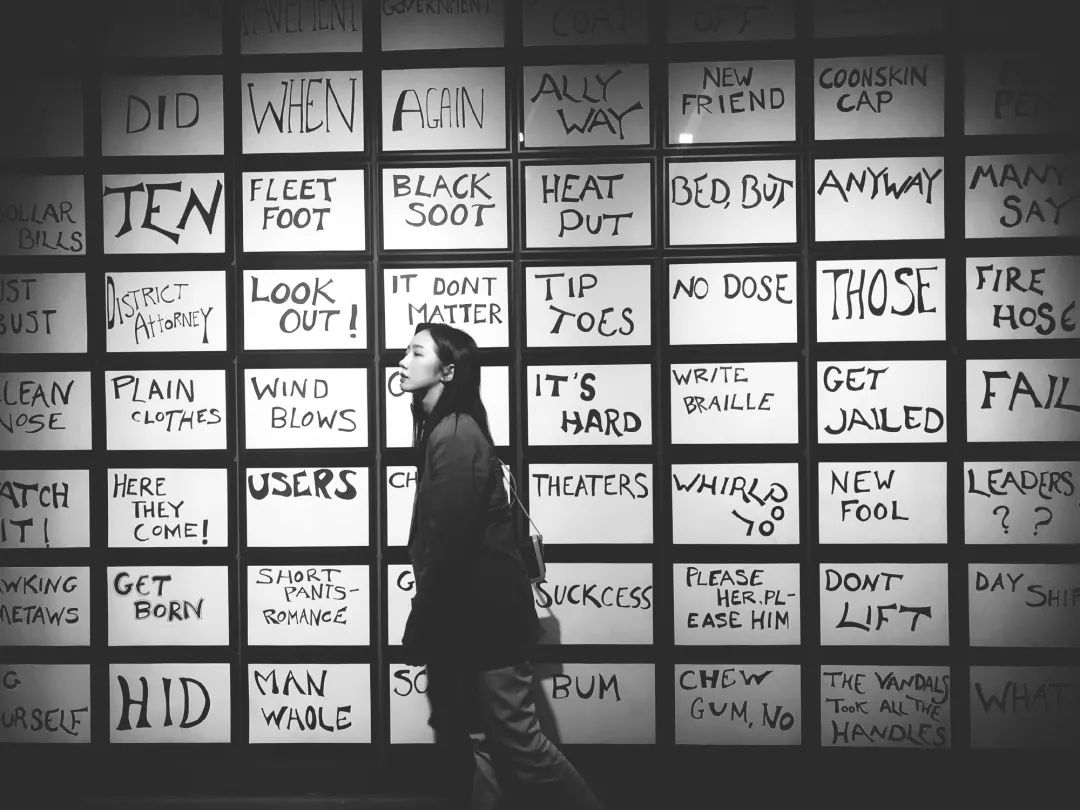 PAVEMENT
GOVERNMENT
COAT
OFF
DID
WHEN
AGAIN
ALLY
WAY
NEW
FRIEND
COONSKIN
CAP
DOLLAR
BILLS
TEN
FLEET
FOOT
BLACK
SOOT
HEAT
PUT
BED, BUT
ANYWAY
MANY
SAY
UST
BUST
DISTRICT
ATTORNEY
LOOK
OUT!
IT DONT
MATTER
TIP
TOES
NO DOSE
THOSE
FIRE
HOSE
CLEAN
NOSE
PLAIN
CLOTHES
WIND
BLOWS
IT'S
HARD
WRITE
BRAILLE
GET
JAILED
FAIL
ATCH
IT!
HERE
THEY
COME!
USERS
CH
THEATERS
WHIRLPOO
NEW
FOOL
LEADERS
? ?
AWKING
METAWS
GET
BORN
SHORT
PANTS-
ROMANCE
G
SUCKCESS
PLEASE
HER, PL-
EASE HIM
DONT
LIFT
DAY SHIF
G
URSELF
HID
MAN
WHOLE
SO
BUM
CHEW
GUM, NO
THE VANDALS
TOOK ALL THE
HANDLES
WHAT